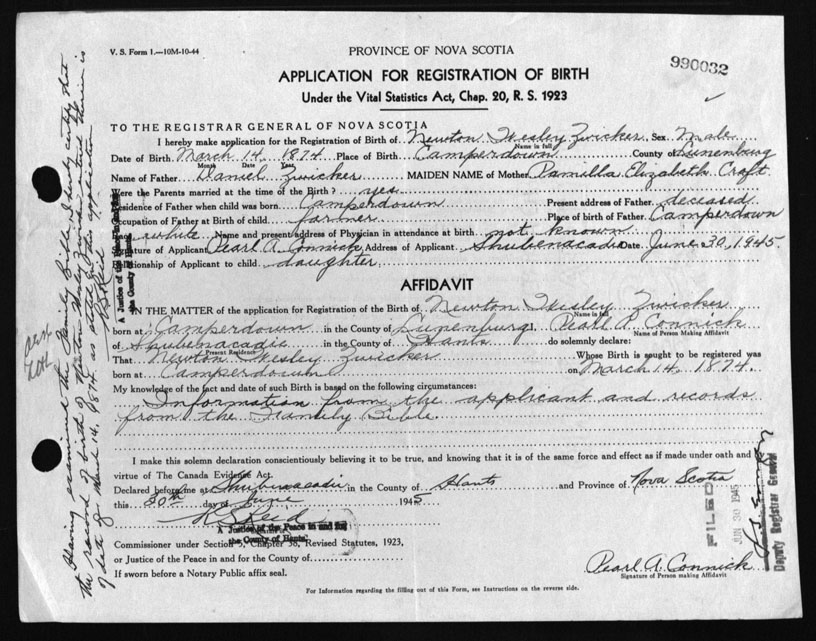 V. S. Form 1.—10M-10-44
PROVINCE OF NOVA SCOTIA
990032
APPLICATION FOR REGISTRATION OF BIRTH
Under the Vital Statistics Act, Chap. 20, R. S. 1923
TO THE REGISTRAR GENERAL OF NOVA SCOTIA
I hereby make application for the Registration of Birth of Newton Wesley Zwicker Sex Male
Name in full
Date of Birth March 14, 1874 Place of Birth Camperdown County of Lunenburg
Month Year
Name of Father Daniel Zwicker MAIDEN NAME of Mother Pamilla Elizabeth Craft
Were the Parents married at the time of the Birth? yes
Residence of Father when child was born Camperdown Present address of Father deceased
Occupation of Father at Birth of child farmer Place of birth of Father Camperdown
white Name and present address of Physician in attendance at birth not known
Signature of Applicant Pearl A. Connick Address of Applicant Shubenacadie Date June 30, 1945.
Relationship of Applicant to child daughter
AFFIDAVIT
IN THE MATTER of the application for Registration of the Birth of Newton Wesley Zwicker
Name in full
born at Camperdown in the County of Lunenburg I, Pearl A. Connick
Name of Person Making Affidavit
of Shubenacadie in the County of Hants do solemnly declare:
Present Residence
That Newton Wesley Zwicker Whose Birth is sought to be registered was
born at Camperdown on March 14, 1874.
My knowledge of the fact and date of such Birth is based on the following circumstances:
Information from the applicant and records
from the Family Bible.
I make this solemn declaration conscientiously believing it to be true, and knowing that it is of the same force and effect as if made under oath and by
virtue of The Canada Evidence Act.
Declared before me at Shubenacadie in the County of Hants and Province of Nova Scotia
this 30th day of June 1945
A Justice of the Peace in and for
the County of Hants
Commissioner under Section 5, Chapter 38, Revised Statutes, 1923,
or Justice of the Peace in and for the County of
If sworn before a Notary Public affix seal.
Pearl A. Connick
Signature of Person making Affidavit
For Information regarding the filling out of this Form, see Instructions on the reverse side.
Having examined the Family Bible, I hereby certify that
the record of birth of Newton Wesley Zwicker therein is
of date of March 14, 1874 as stated in this application
A Justice of the Peace in and for
the County of Hants
FILED
JUN 30 1945
Deputy Registrar General